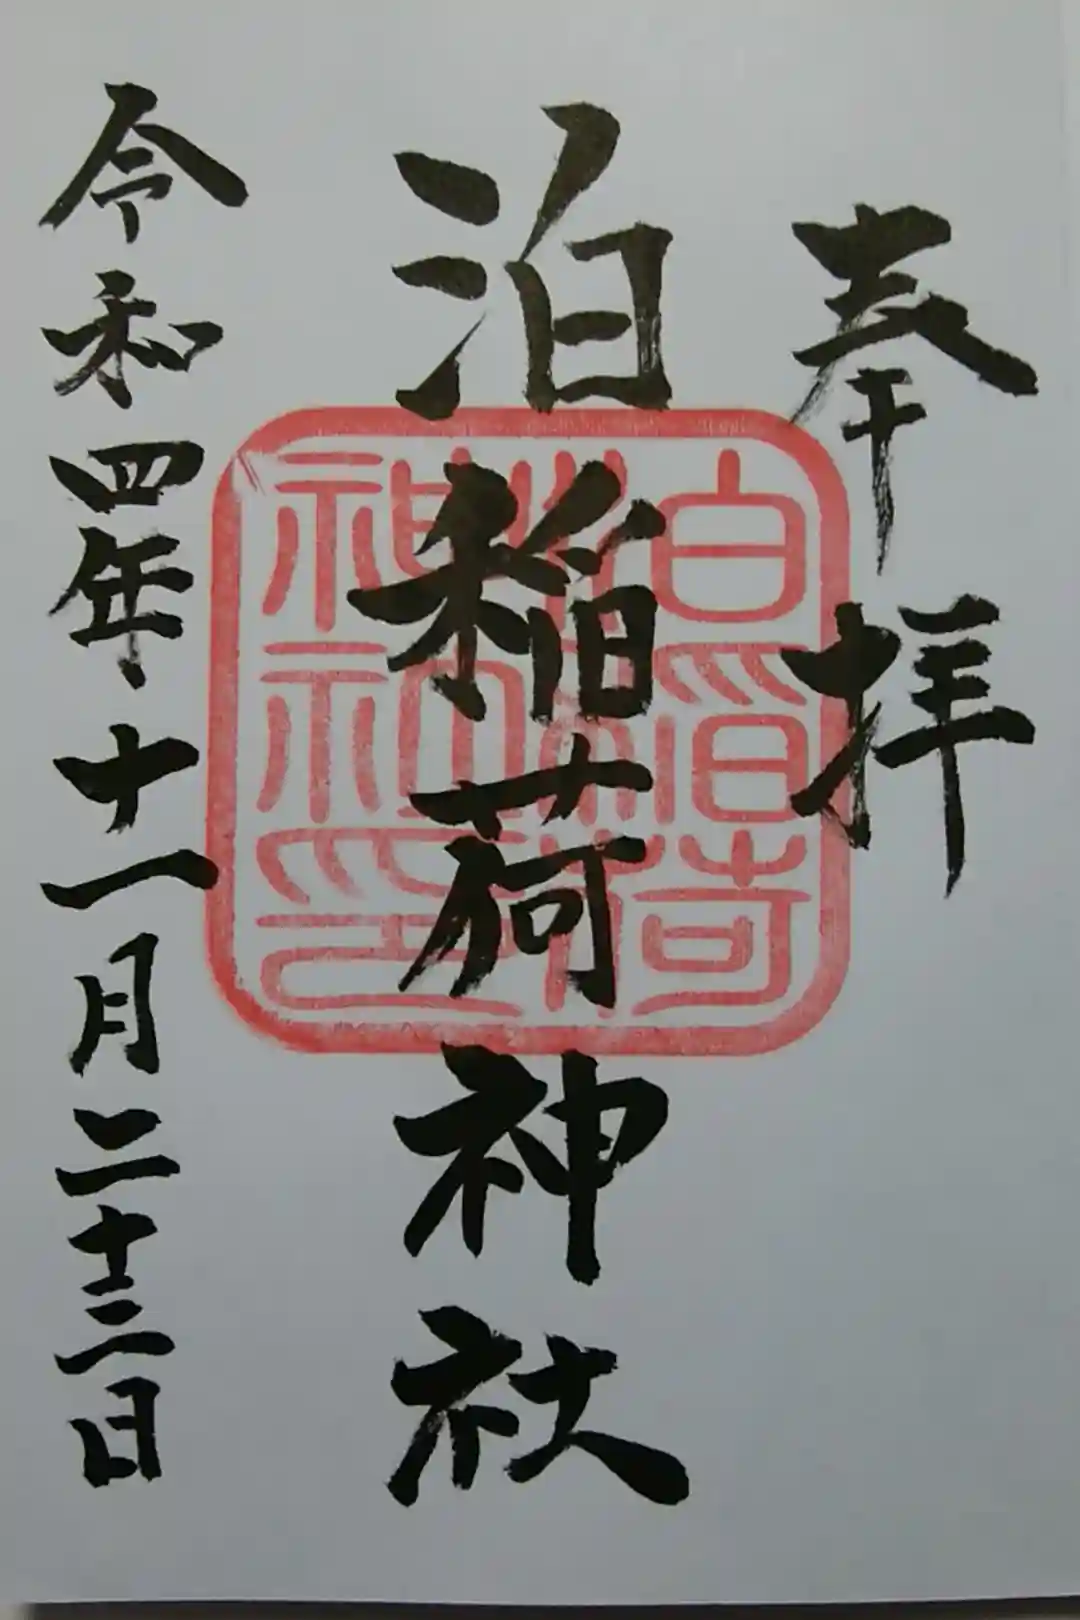 奉拝
泊稲荷神社
令和四年十一月二十三日
泊稲荷
神社印